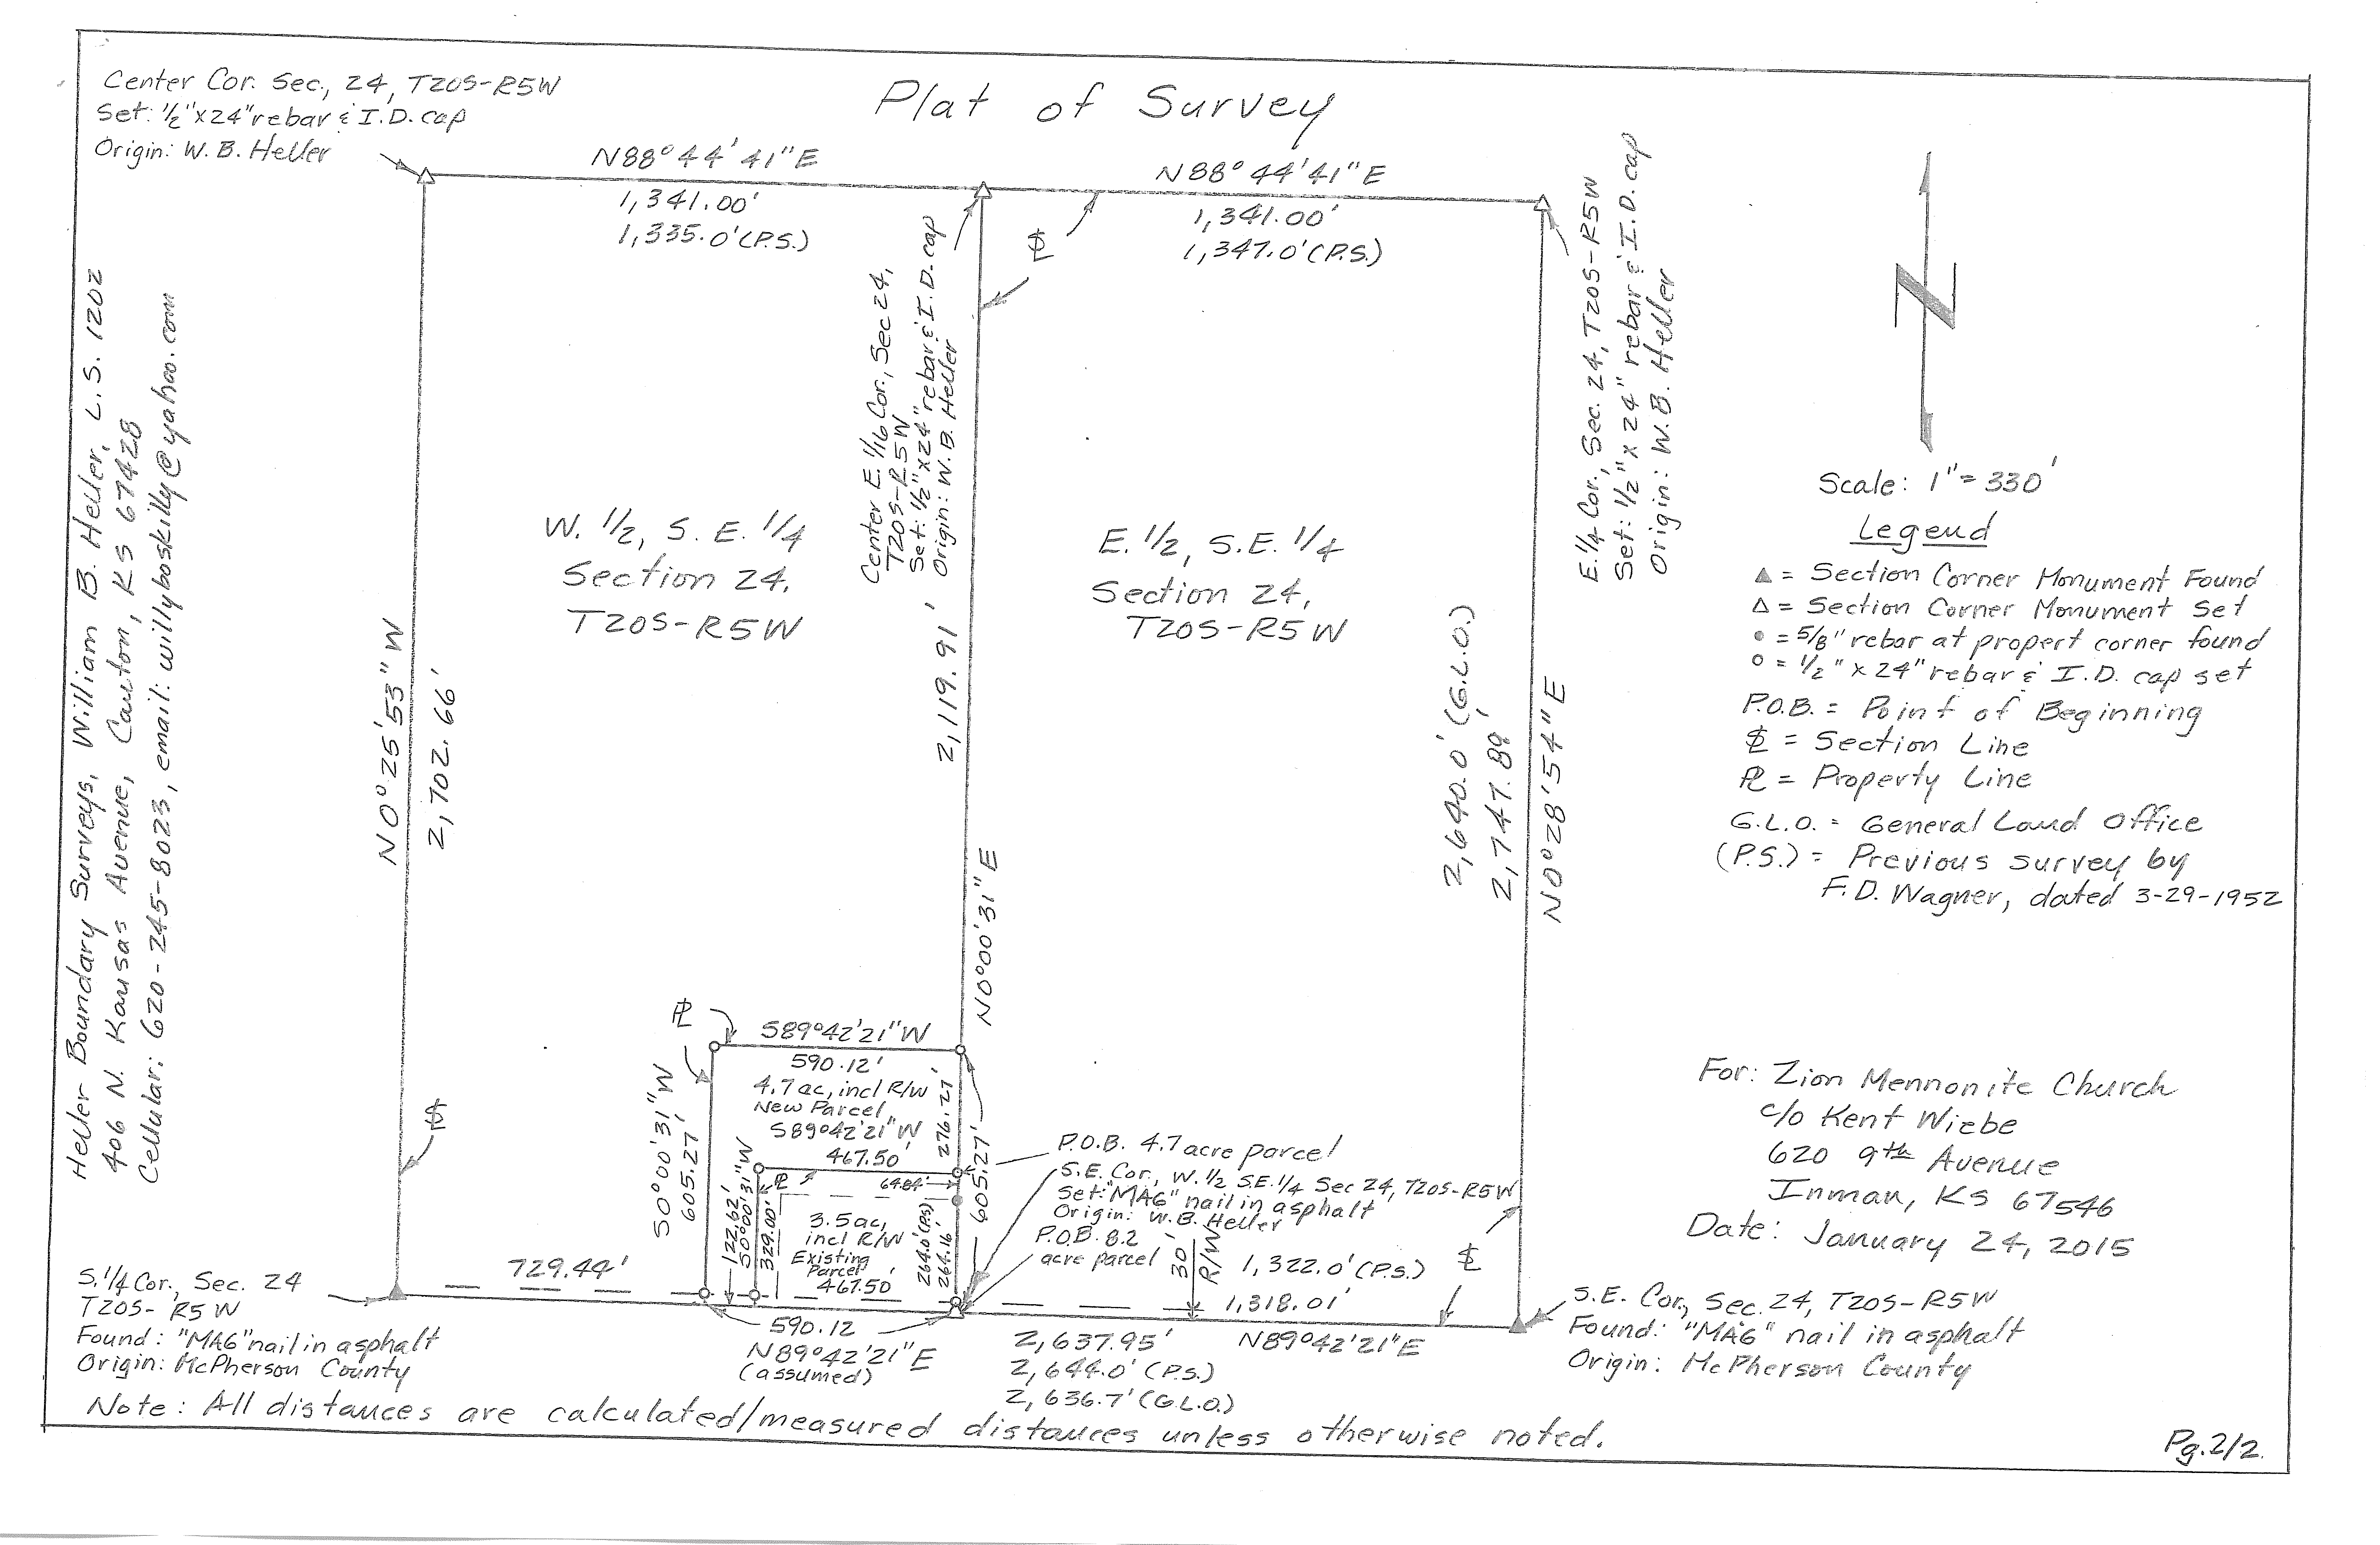 Plat of Survey
Center Cor. Sec., 24, T20S-R5W
Set: 1/2"x24" rebar & I.D. cap
Origin: W. B. Heller
N88°44'41"E
1,341.00'
1,335.0'(P.S.)
N88°44'41"E
1,341.00'
1,347.0'(P.S.)
Center E. 1/16 Cor., Sec 24,
T20S-R5W
Set: 1/2"x24" rebar & I.D. cap
Origin: W. B. Heller
E. 1/4 Cor., Sec. 24, T20S-R5W
Set: 1/2" x 24" rebar & I.D. cap
Origin: W. B. Heller
N
Scale: 1" = 330'
Legend
▲ = Section Corner Monument Found
△ = Section Corner Monument Set
● = 5/8" rebar at propert corner found
○ = 1/2" x 24" rebar & I.D. cap set
P.O.B. = Point of Beginning
= Section Line
PL = Property Line
G.L.O. = General Land Office
(P.S.) = Previous survey by
F. D. Wagner, dated 3-29-1952
Heller Boundary Surveys, William B. Heller, L.S. 1202
406 N. Kansas Avenue, Canton, KS 67428
Cellular: 620-245-8023, email: willyboskilly@yahoo.com
W. 1/2, S. E. 1/4
Section 24,
T20S-R5W
E. 1/2, S.E. 1/4
Section 24,
T20S-R5W
N0°25'53"W
2,702.66'
2,119.91'
N0°00'31"E
2,640.0' (G.L.O.)
2,747.89'
N0°28'54"E
PL
S89°42'21"W
590.12'
4.7 ac, incl R/W
New Parcel
S89°42'21"W
467.50'
276.27'
S0°00'31"W
605.27'
122.62'
S0°00'31"W
329.00'
PL
64.84'
3.5 ac,
incl R/W
Existing
Parcel
467.50'
264.0'(P.S)
264.16'
605.27'
P.O.B. 4.7 acre parcel
S.E. Cor., W. 1/2 S.E. 1/4 Sec 24, T20S-R5W
Set: "MAG" nail in asphalt
Origin: W. B. Heller
P.O.B. 8.2
acre parcel
30'
R/W
1,322.0'(P.S.)
1,318.01'
729.44'
590.12
N89°42'21"E
(assumed)
2,637.95'
2,644.0' (P.S.)
2,636.7' (G.L.O.)
N89°42'21"E
S. 1/4 Cor., Sec. 24
T20S-R5W
Found: "MAG" nail in asphalt
Origin: McPherson County
S.E. Cor., Sec. 24, T20S-R5W
Found: "MAG" nail in asphalt
Origin: McPherson County
For: Zion Mennonite Church
c/o Kent Wiebe
620 9th Avenue
Inman, KS 67546
Date: January 24, 2015
Note: All distances are calculated/measured distances unless otherwise noted.
Pg. 2/2